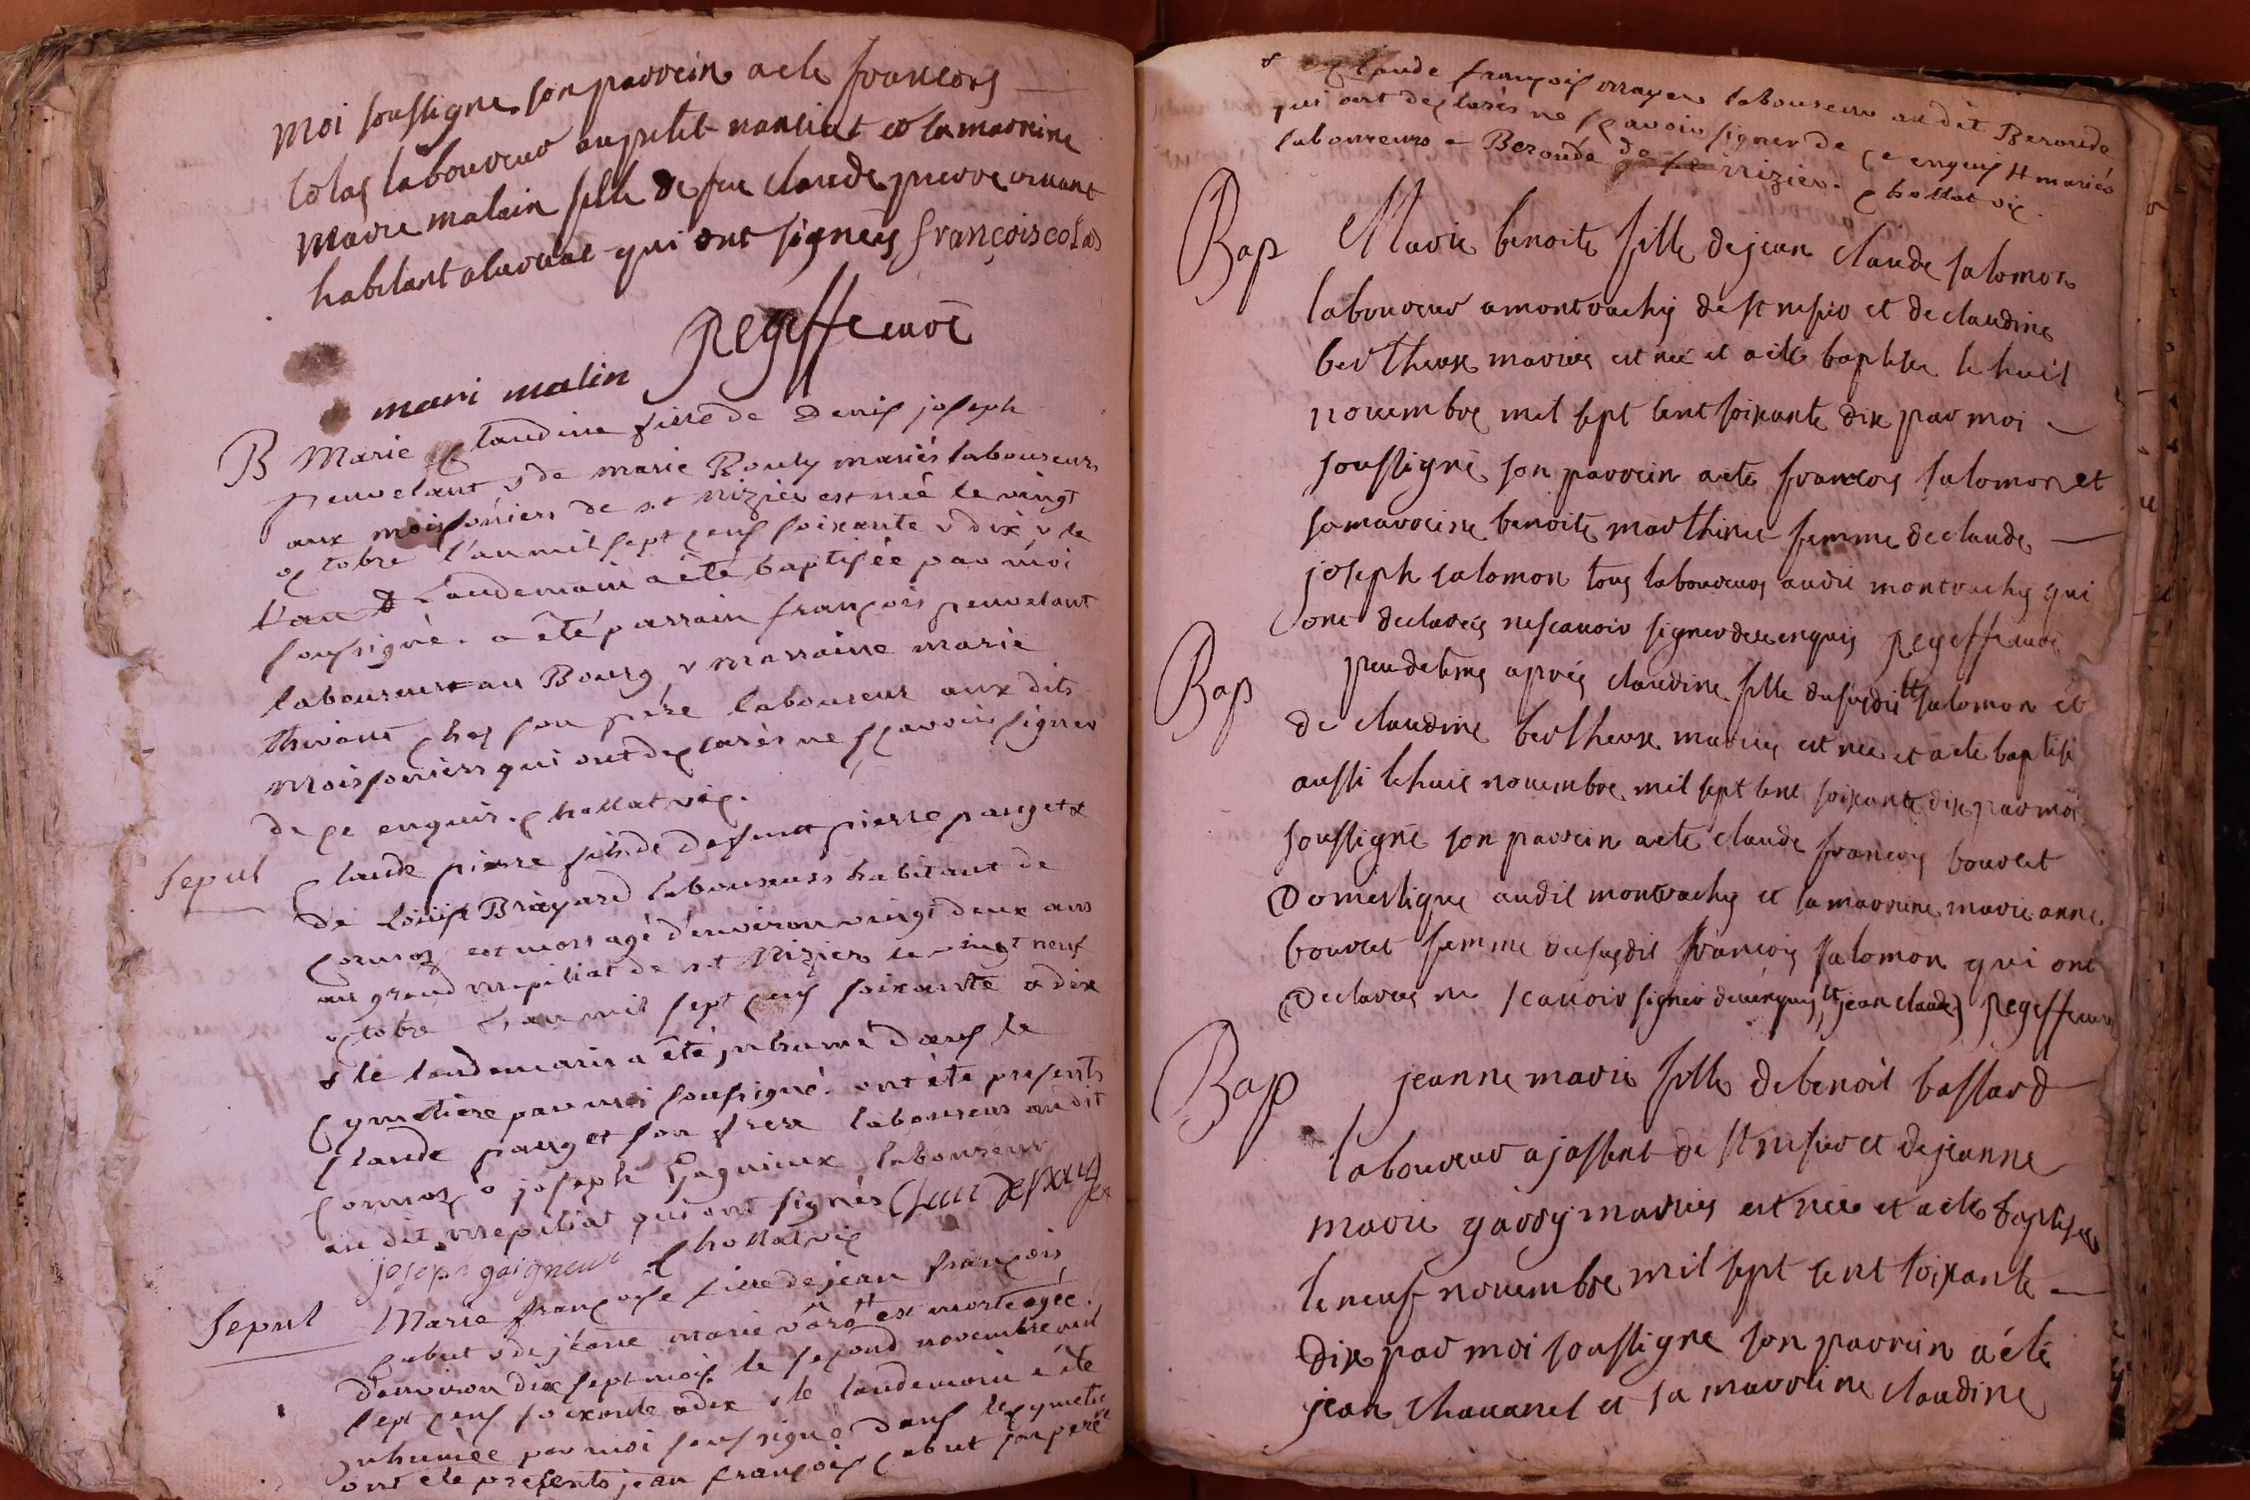 moi soussigne son parrein a ete francois
Colas laboureur au petit nantiat et la marreine
Marie malain fille de feu claude pierre vivant
habitant a laveuat qui ont signéés françois colas
Regeffe curé
mari malin
B Marie Claudine fille de denis joseph
peuvelant & de marie Bouly mariés laboureurs
aux moissoniers de st nizier est née le vingt
octobre l'an mil sept cens soixante & dix & le
landemain a êté baptisée par moi
sousigné. a êté parrain françois peuvelant
laboureur au Bourg & marraine marie
chez son père laboureur aux dits
Moissoniers qui ont declarés ne sçavoir signer
de ce enquis. chollat vic.
Sepul Claude pierre fils de defunt pierre pauget &
de Brayard laboureurs habitant de
Cormoz est mort agé d'environ vingt deux ans
au grand mepiliat de st Nizier le vingt neuf
octobre l'an mil sept cens soixante & dix
& le landemain a êté inhumé dans le
Cymetiere par moi sousigné. ont été presents
Claude pauget son frere laboureur au dit
Cormoz & joseph Gagnieux laboureur
au dit mepiliat qui ont signés
joseph gaigneux Chollat vic
Sepul Marie françoise fille de jean françois
Cabut & de jeane marie est morte agée
d'environ dix sept mois le second novembre mil
sept cens soixante & dix & le landemain a été
inhumée par moi sousigné dans le cymetiere
ont ete presents jean françois Cabut son pere
& Claude françois laboureur au dit Beroude
qui ont declarés ne sçavoir signer de ce enquis # mariés
laboureurs a Beroude de st nizier. chollat vic.
Bap Marie benoite fille de jean Claude salomon
laboureur a montrachy de st nisier et de claudine
bertheux mariés est née et a été baptisée le huit
novembre mil sept cent soixante dix par moi
soussigné son parrein a été francois salomon et
sa marreine benoite marthinet femme de claude
joseph salomon tous laboureurs audit montrachy qui
ont declarés ne scavoir signer de ce enquis Regeffe curé
Bap peu de tems aprés claudine fille du susdit # salomon et
de claudine bertheux mariés est née et a été baptisé
aussi le huit novembre mil sept cent soixante dix par moi
soussigné son parrein a été claude francois bouvert
Domestique audit montrachy et sa marreine marie anne
bouvert femme du susdit francois salomon qui ont
Declarés ne scavoir signer de ce enquis (# jean claude) Regeffe curé
Bap jeanne marie fille de benoit bassard
laboureur a jassent de st nisier et de jeanne
marie mariés est née et a été baptisée
le neuf novembre mil sept cent soixante
dix par moi soussigne son parrein a été
jean chavanel et sa marreine claudine